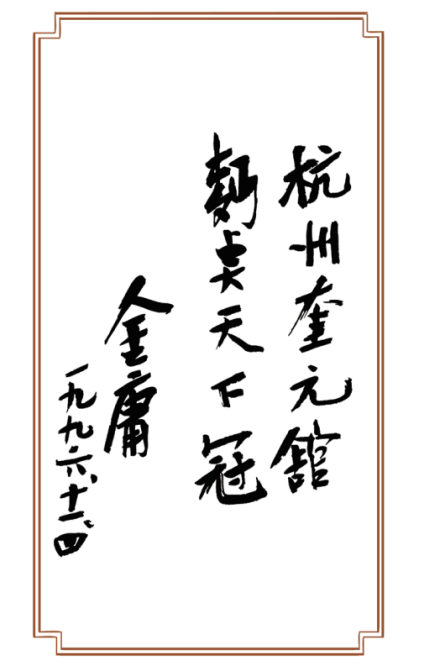 杭州奎元舘
麪奌天下冠
金庸
一九九六、十一、四